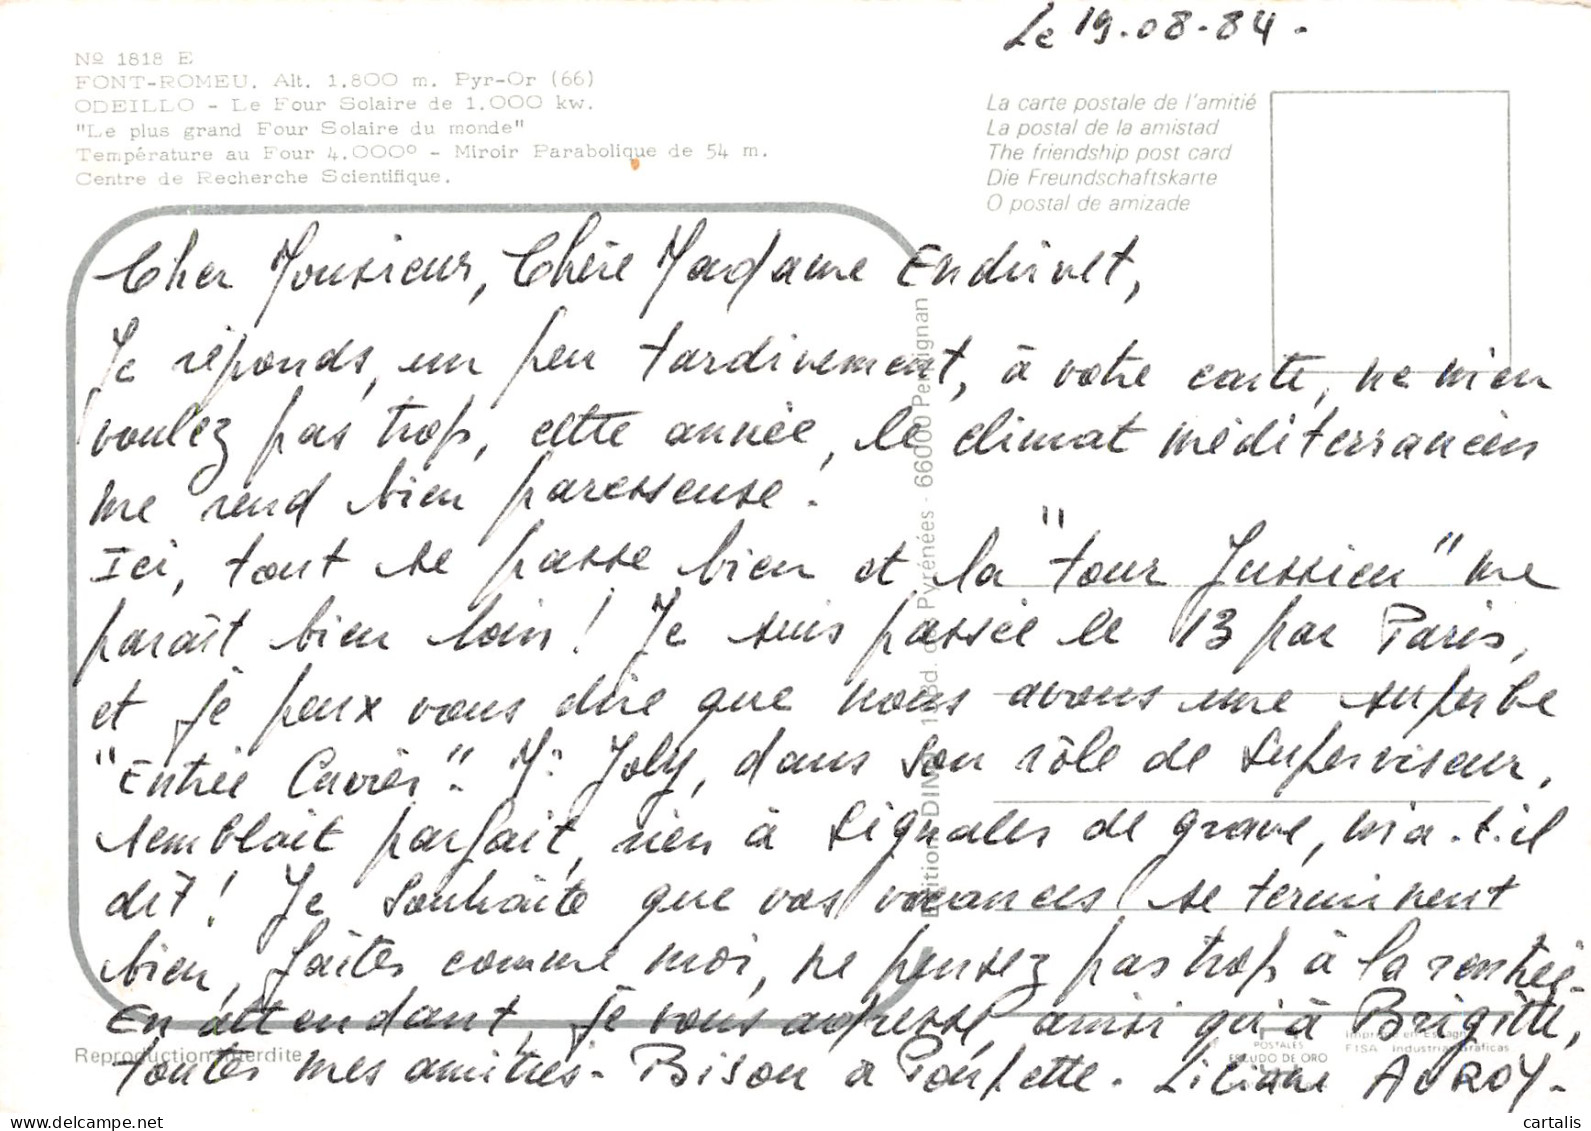 Le 19.08.84.
Nº 1818 E
FONT-ROMEU. Alt. 1.800 m. Pyr-Or (66)
ODEILLO - Le Four Solaire de 1.000 kw.
"Le plus grand Four Solaire du monde"
Température au Four 4.000º - Miroir Parabolique de 54 m.
Centre de Recherche Scientifique.
La carte postale de l'amitié
La postal de la amistad
The friendship post card
Die Freundschaftskarte
O postal de amizade
Cher Monsieur, Chère Madame
Je réponds, un peu tardivement, à votre carte, ne m'en
voulez pas trop, cette année, le climat méditerranéen
me rend bien paresseuse.
Ici, tout se passe bien et la "tour Jussieu" me
paraît bien loin! Je suis passée le 13 par Paris,
et je peux vous dire que nous avons une superbe
"Entrée Cuvier". Mr Joly, dans son rôle de superviseur,
semblait parfait, rien à signaler de grave, m'a-t-il
dit! Je souhaite que vos vacances se terminent
bien, faites comme moi, ne pensez pas trop à la rentrée.
En attendant, je vous adresse, ainsi qu'à Brigitte,
toutes mes amitiés. Bisou à Poupette. Liliane AUROY.
66000 Perpignan
Reproduction interdite
POSTALES
ESCUDO DE ORO
FISA Industrias Gráficas
www.delcampe.net
cartalis